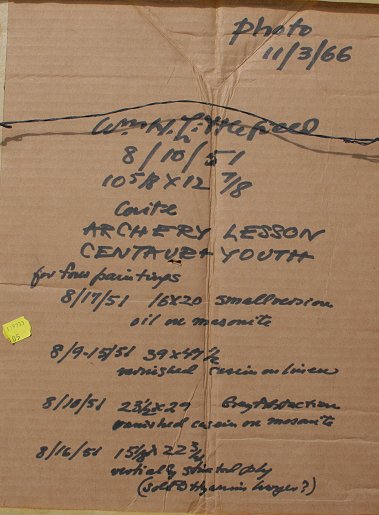 photo
11/3/66
Wm. H. Littlefield
8/10/51
10 5/8 X 12 7/8
Conté
ARCHERY LESSON
CENTAUR + YOUTH
for four paintings
8/17/51 16X20 small version
oil on masonite
8/9-15/51 39X49 1/2
varnished casein on linen
8/10/51 23 1/2 X 29 Grey Abstraction
varnished casein on masonite
8/16/51 15 1/2 X 22 3/4
vertically
(sold @ Hyannis